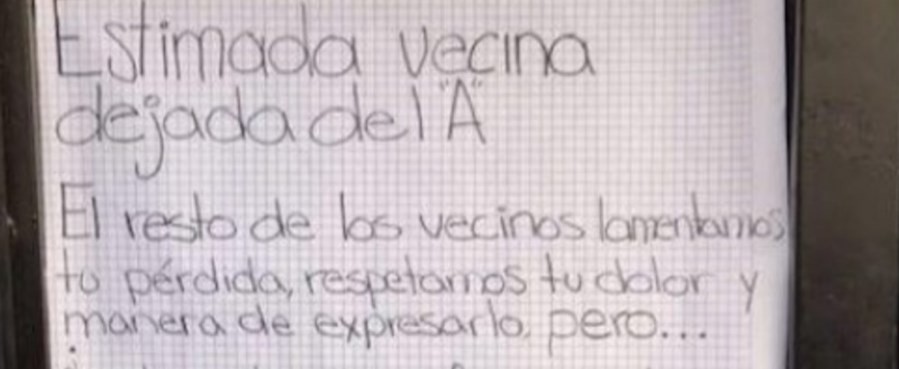 Estimada vecina
dejada del "A"
El resto de los vecinos lamentamos
tu pérdida, respetamos tu dolor y
manera de expresarlo, pero...